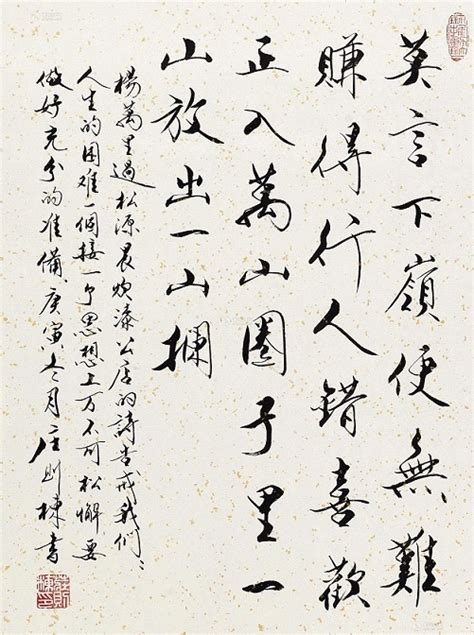 莫言下嶺便無難
賺得行人錯喜歡
正入萬山圈子里一
山放出一山攔
楊萬里過松源晨炊漆公店的詩告戒我們、
人生的困难一個接一个思想上万不可松懈要
做好充分的准備、庚寅冬月庄则棟書